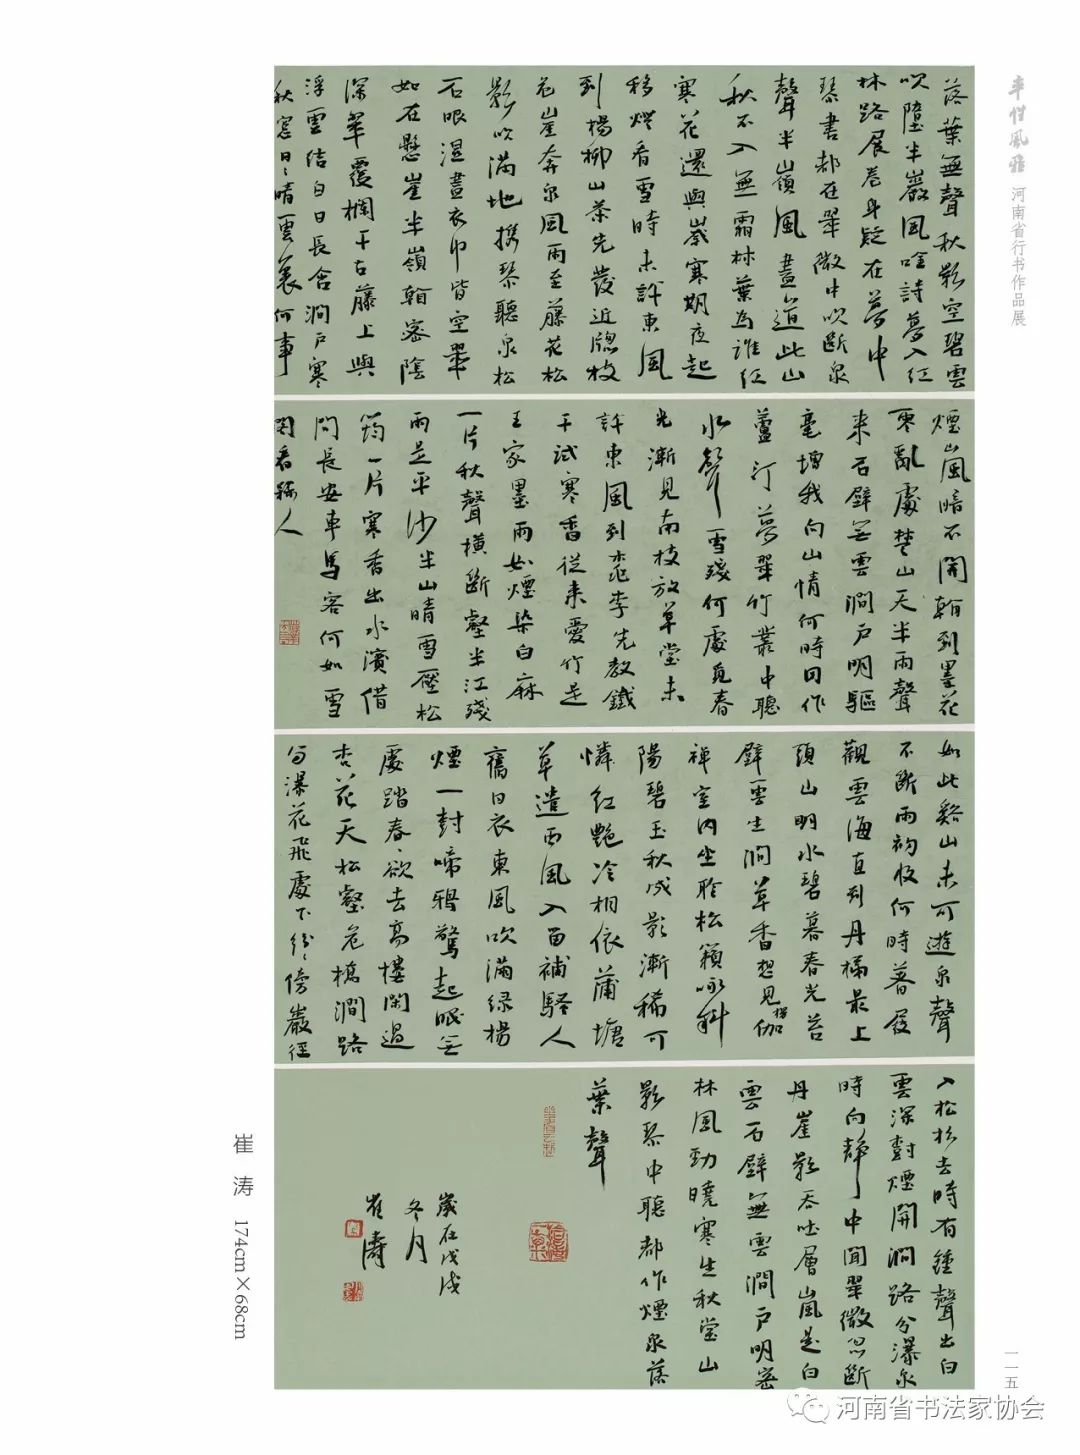 率性风雅 河南省行书作品展
落葉無聲秋影空碧雲
吹墮半巖風吟詩夢入紅
林路展卷身疑在夢中
琴書都在翠微中吹斷泉
聲半嶺風盡道此山
秋不入無霜林葉為誰紅
寒花還與歲寒期夜起
移燈看雪時未許東風
到楊柳山茶先發近牕枝
花崖奔泉風雨至藤花松
影吹滿地携琴聽泉松
石眼濕晝衣巾皆空翠
如在懸崖半嶺翰密陰
深翠覆欄干古藤上與
浮雲結白日長含澗戶寒
秋窓日日晴雲裏何事
煙嵐暗不開翰到墨花
零亂處楚山天半雨聲
来石壁無雲澗戶明驅
毫增我向山情何時因作
蘆汀夢翠竹叢中聽
水聲雪殘何處覓春
光漸見南枝放草堂未
許東風到桃李先教鐵
干試寒香從来愛竹是
王家墨雨如煙染白麻
一片秋聲橫斷壑半江殘
雨是平沙半山晴雪壓松
筠一片寒香出水濱借
問長安車馬客何如雪
閣看梅人
如此谿山未可遊泉聲
不斷雨初收何時著屐
觀雲海直到丹梯最上
頭山明水碧暮春光苔
壁雲生澗草香想見楞伽
禅室内坐聆松籟咏斜
陽碧玉秋成影漸稀可
憐紅艷冷相依蒲塘
草遣西風入留補騷人
舊日衣東風吹滿绿楊
煙一封啼鴉驚起眠無
處踏春欲去高樓閑過
杏花天松壑危橋澗路
分瀑花飛處下紛紛傍巖徑
入松杉去時有鐘聲出白
雲深對煙開澗路分瀑泉
時向靜中聞翠微忽斷
丹崖影吞吐層嵐是白
雲石壁無雲澗戶明密
林風勁曉寒生秋堂山
影琴中聽都作煙泉落
葉聲
歲在戊戌
冬月
崔濤
崔 涛 174cm×68cm
一一五
河南省书法家协会